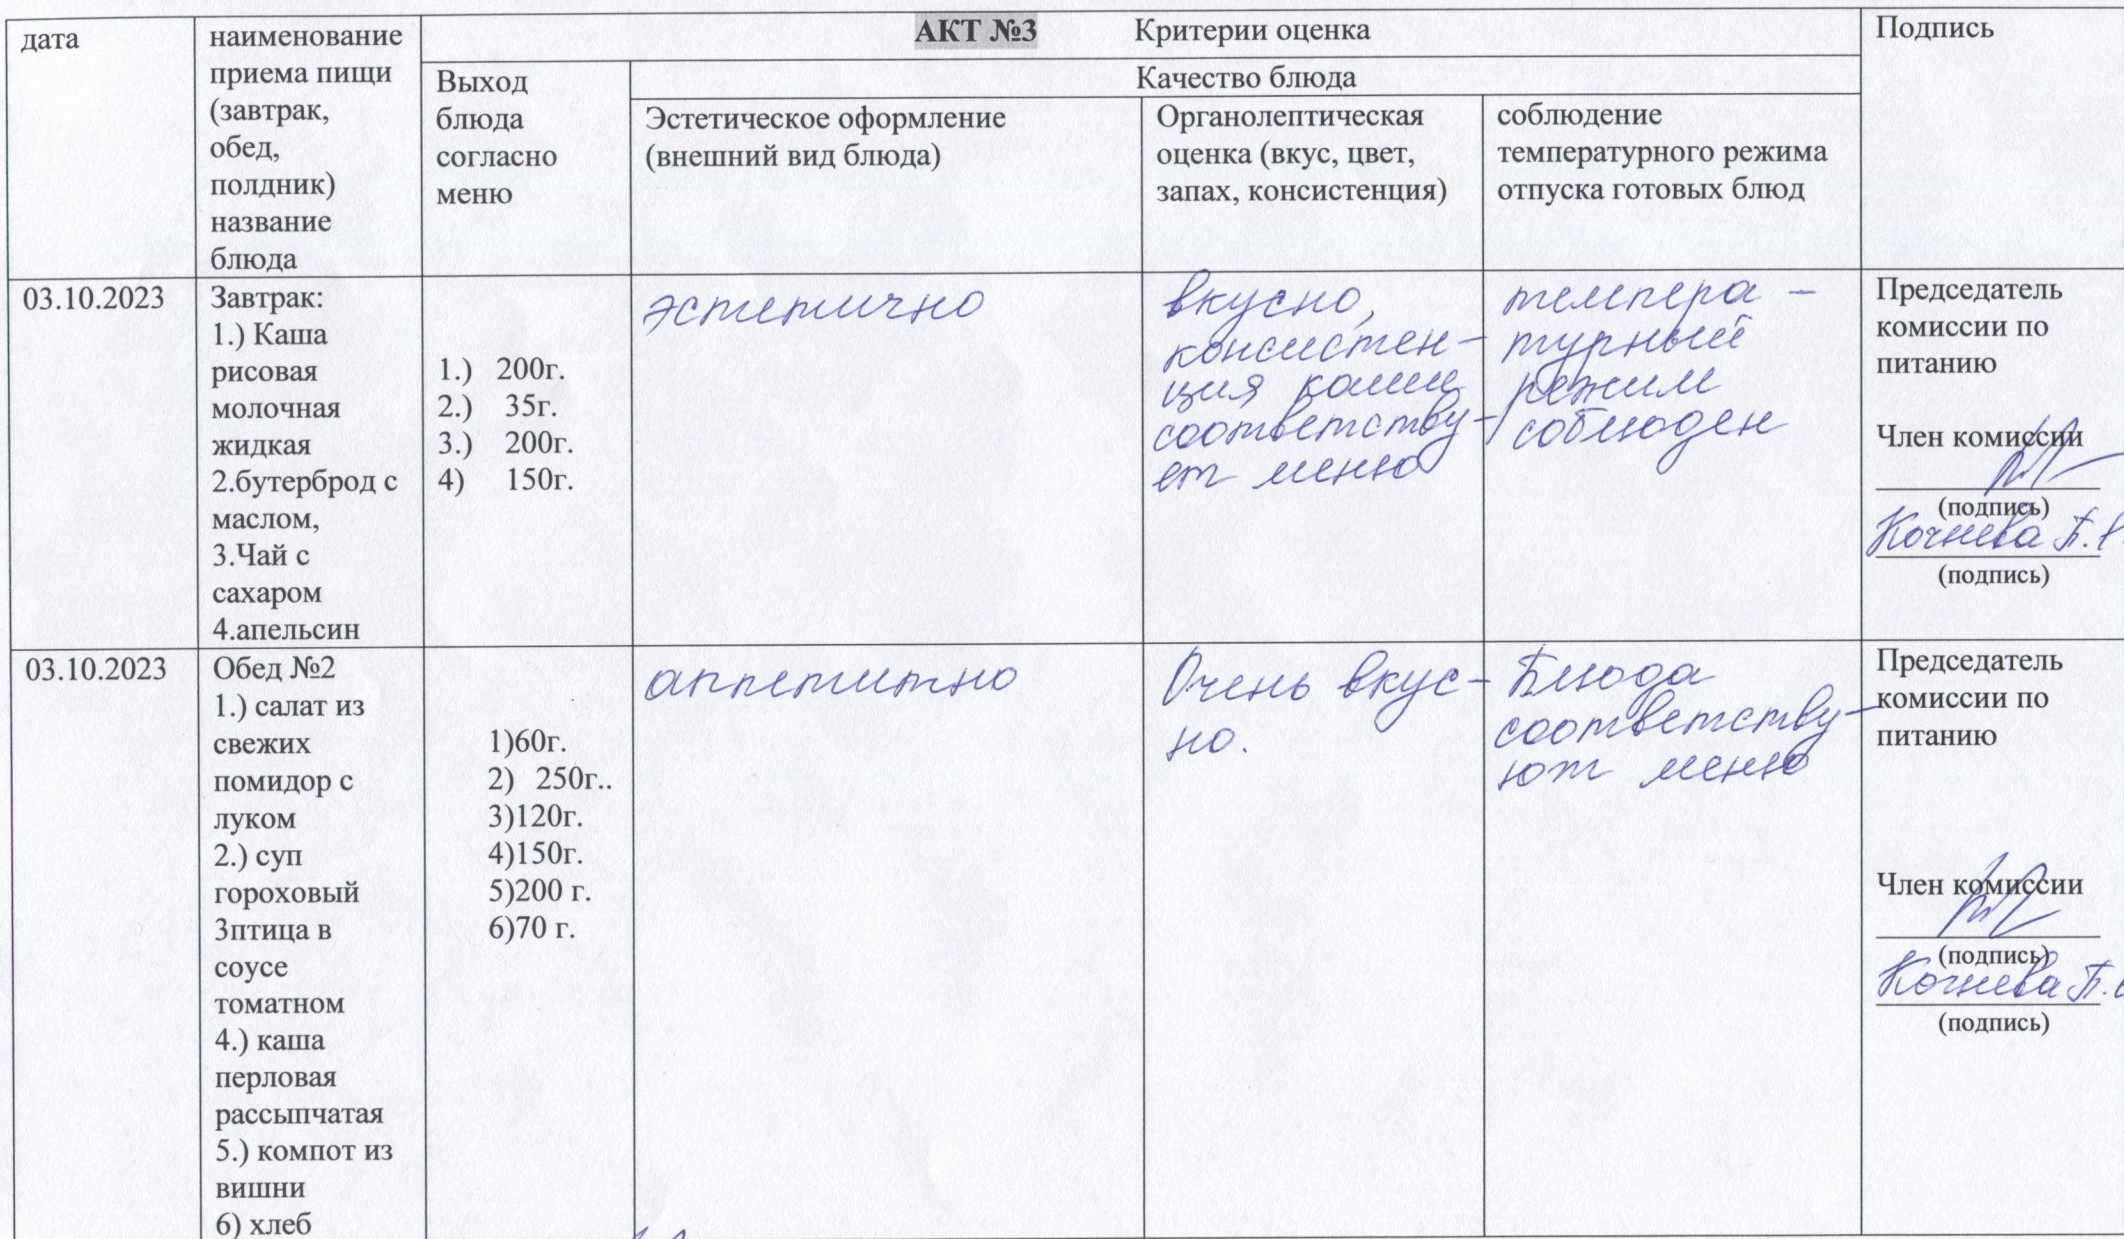 дата
наименование
приема пищи
(завтрак,
обед,
полдник)
название
блюда
АКТ №3 Критерии оценка
Подпись
Выход
блюда
согласно
меню
Качество блюда
Эстетическое оформление
(внешний вид блюда)
Органолептическая
оценка (вкус, цвет,
запах, консистенция)
соблюдение
температурного режима
отпуска готовых блюд
03.10.2023
Завтрак:
1.) Каша
рисовая
молочная
жидкая
2.бутерброд с
маслом,
3.Чай с
сахаром
4.апельсин
1.) 200г.
2.) 35г.
3.) 200г.
4) 150г.
эстетично
вкусно,
консистен-
ция каши
соответству-
ет меню
темпера-
турный
режим
соблюден
Председатель
комиссии по
питанию
Член комиссии
(подпись)
Кочнева
(подпись)
03.10.2023
Обед №2
1.) салат из
свежих
помидор с
луком
2.) суп
гороховый
3птица в
соусе
томатном
4.) каша
перловая
рассыпчатая
5.) компот из
вишни
6) хлеб
1)60г.
2) 250г..
3)120г.
4)150г.
5)200 г.
6)70 г.
аппетитно
Очень вкус-
но.
Блюда
соответству-
ют меню
Председатель
комиссии по
питанию
Член комиссии
(подпись)
Кочнева
(подпись)